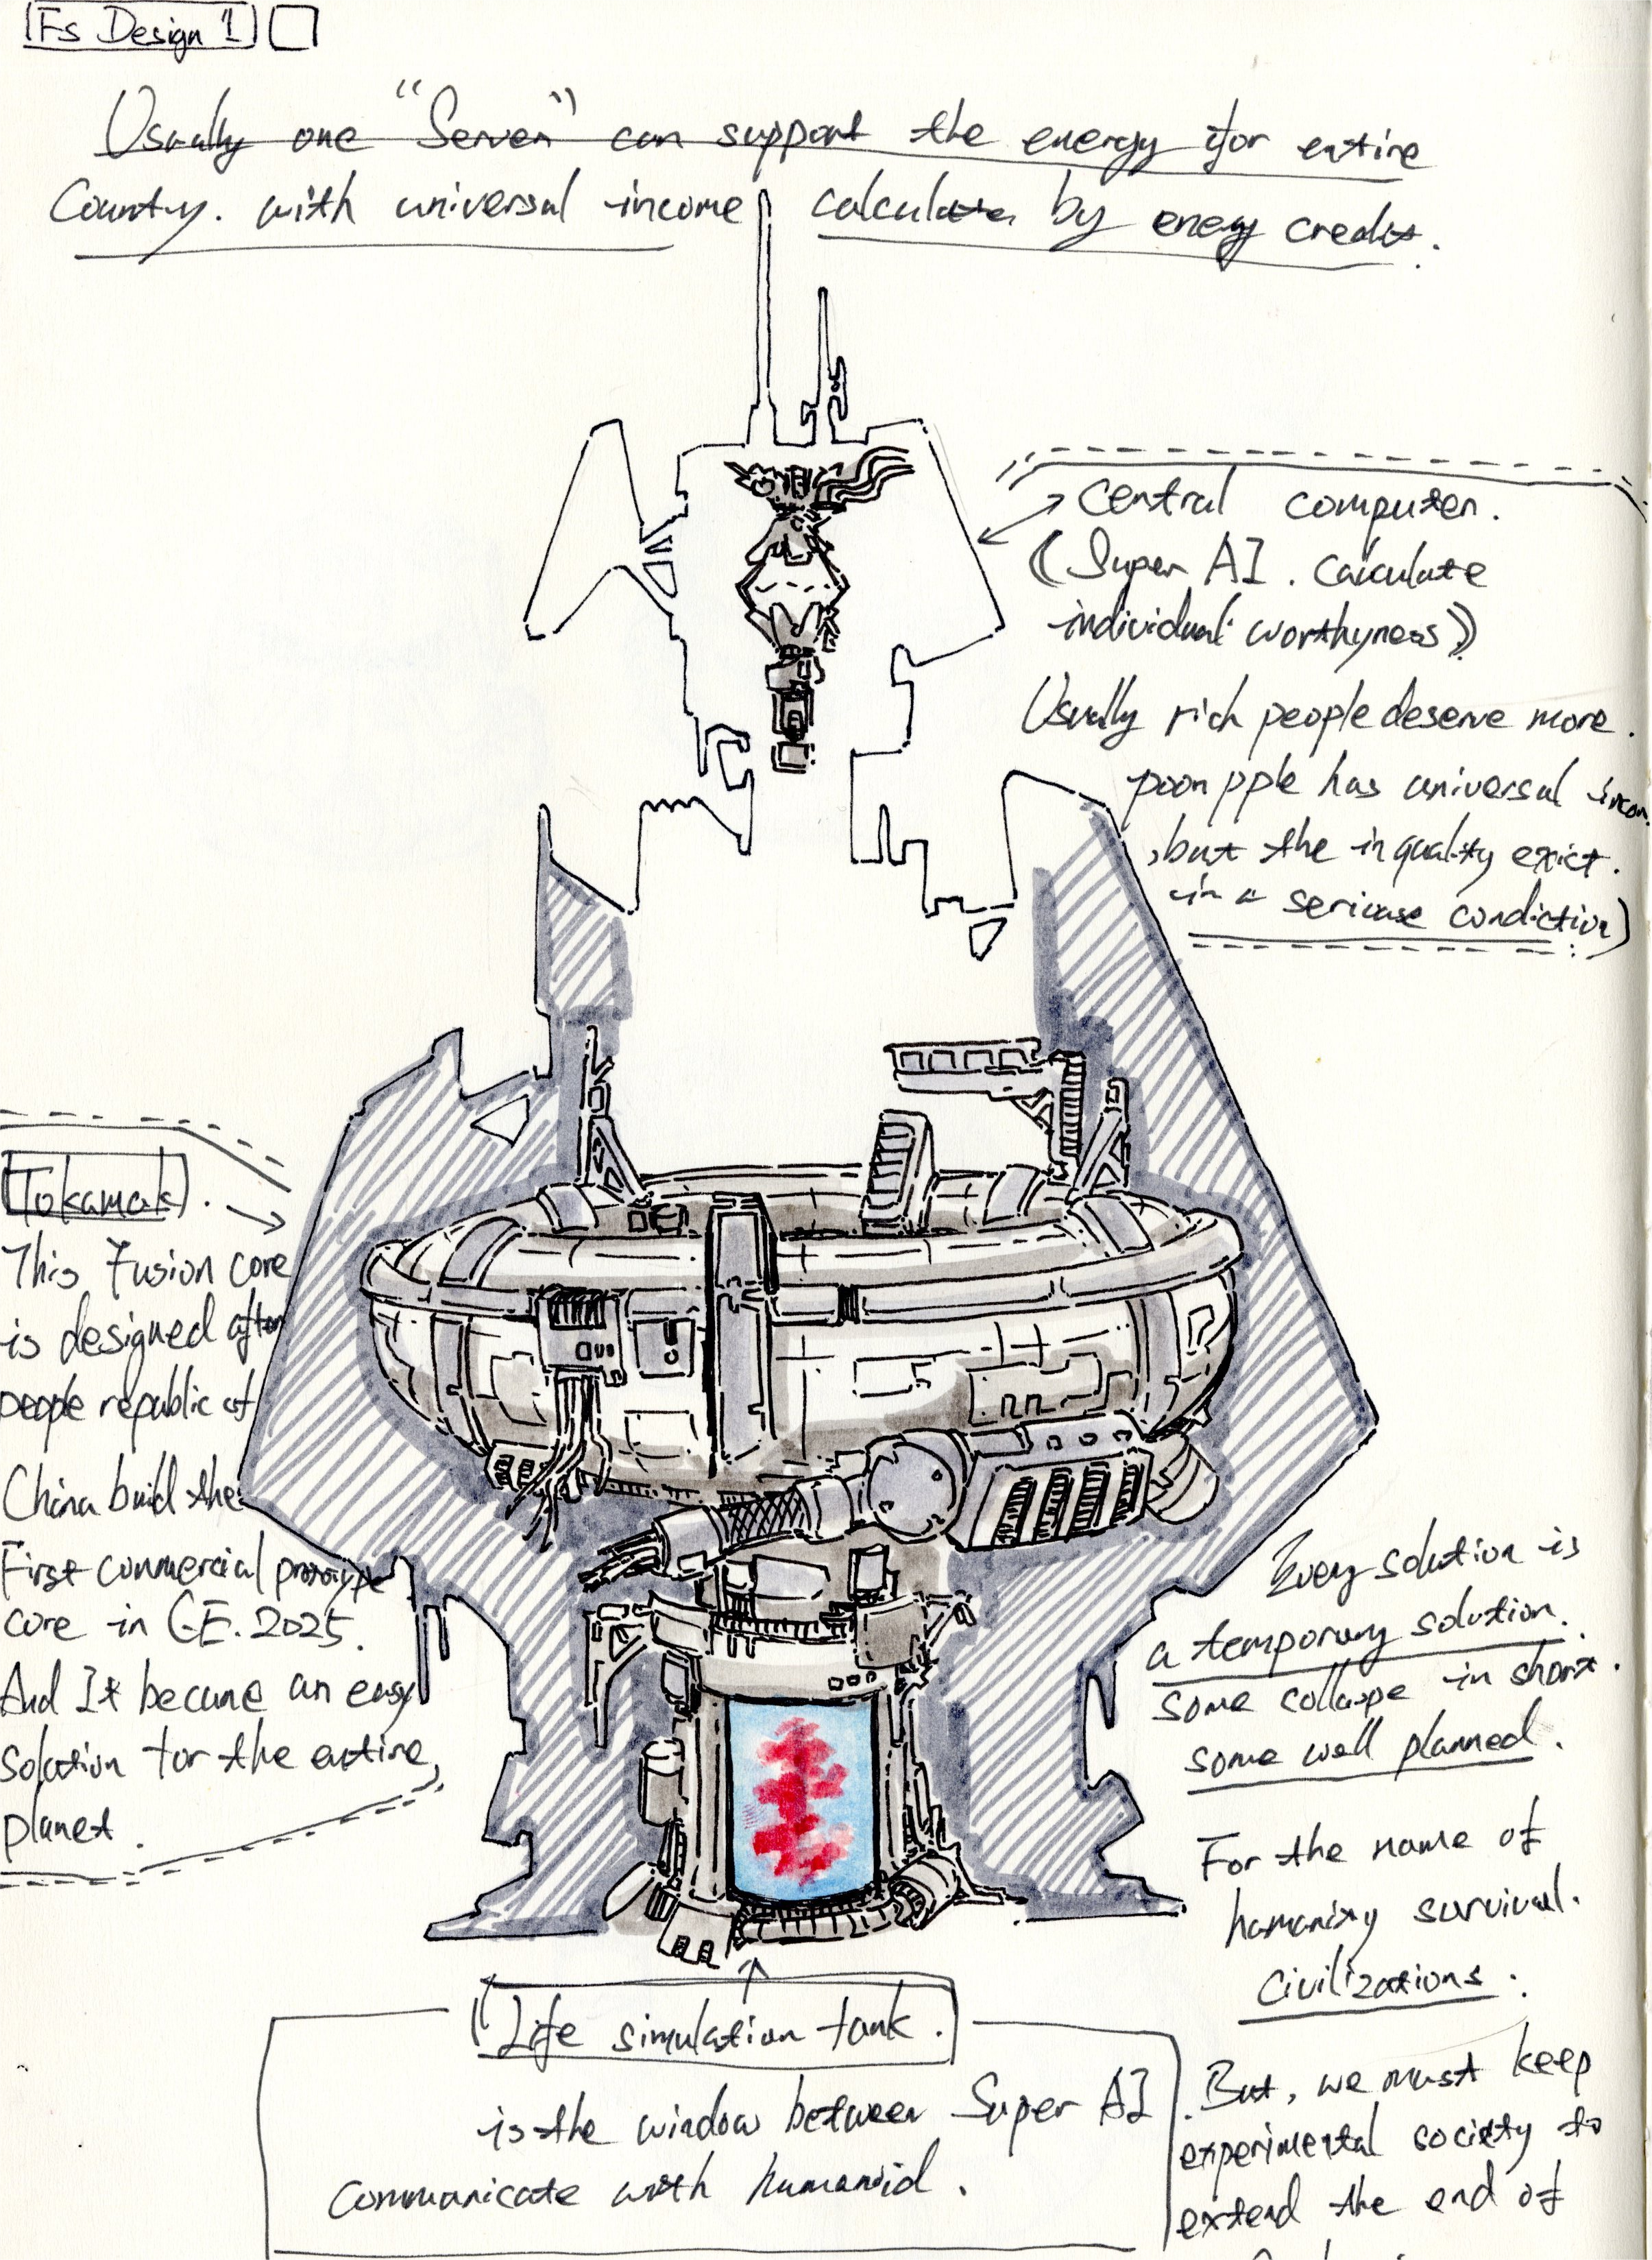 Fs Design 1
Usually one "Server" can support the energy for entire
Country. with universal income calculate by energy credit.
Central computer.
(Super AI. Calculate
individual worthyness)
Usually rich people deserve more.
poor pple has universal incom.
, but the inquality exict.
in a seriouse condiction)
Tokamak.
This Fusion core
is designed after
people republic of
China build the
First commercial prototype
core in CE. 2025.
And It became an easy
solution for the entire
planet.
Every solution is
a temporary solution.
some collapse in short.
some well planned.
For the name of
humanity survival.
Civilizations.
But, we must keep
experimental society to
extend the end of
Life simulation tank.
is the window between Super AI
communicate with humanoid.